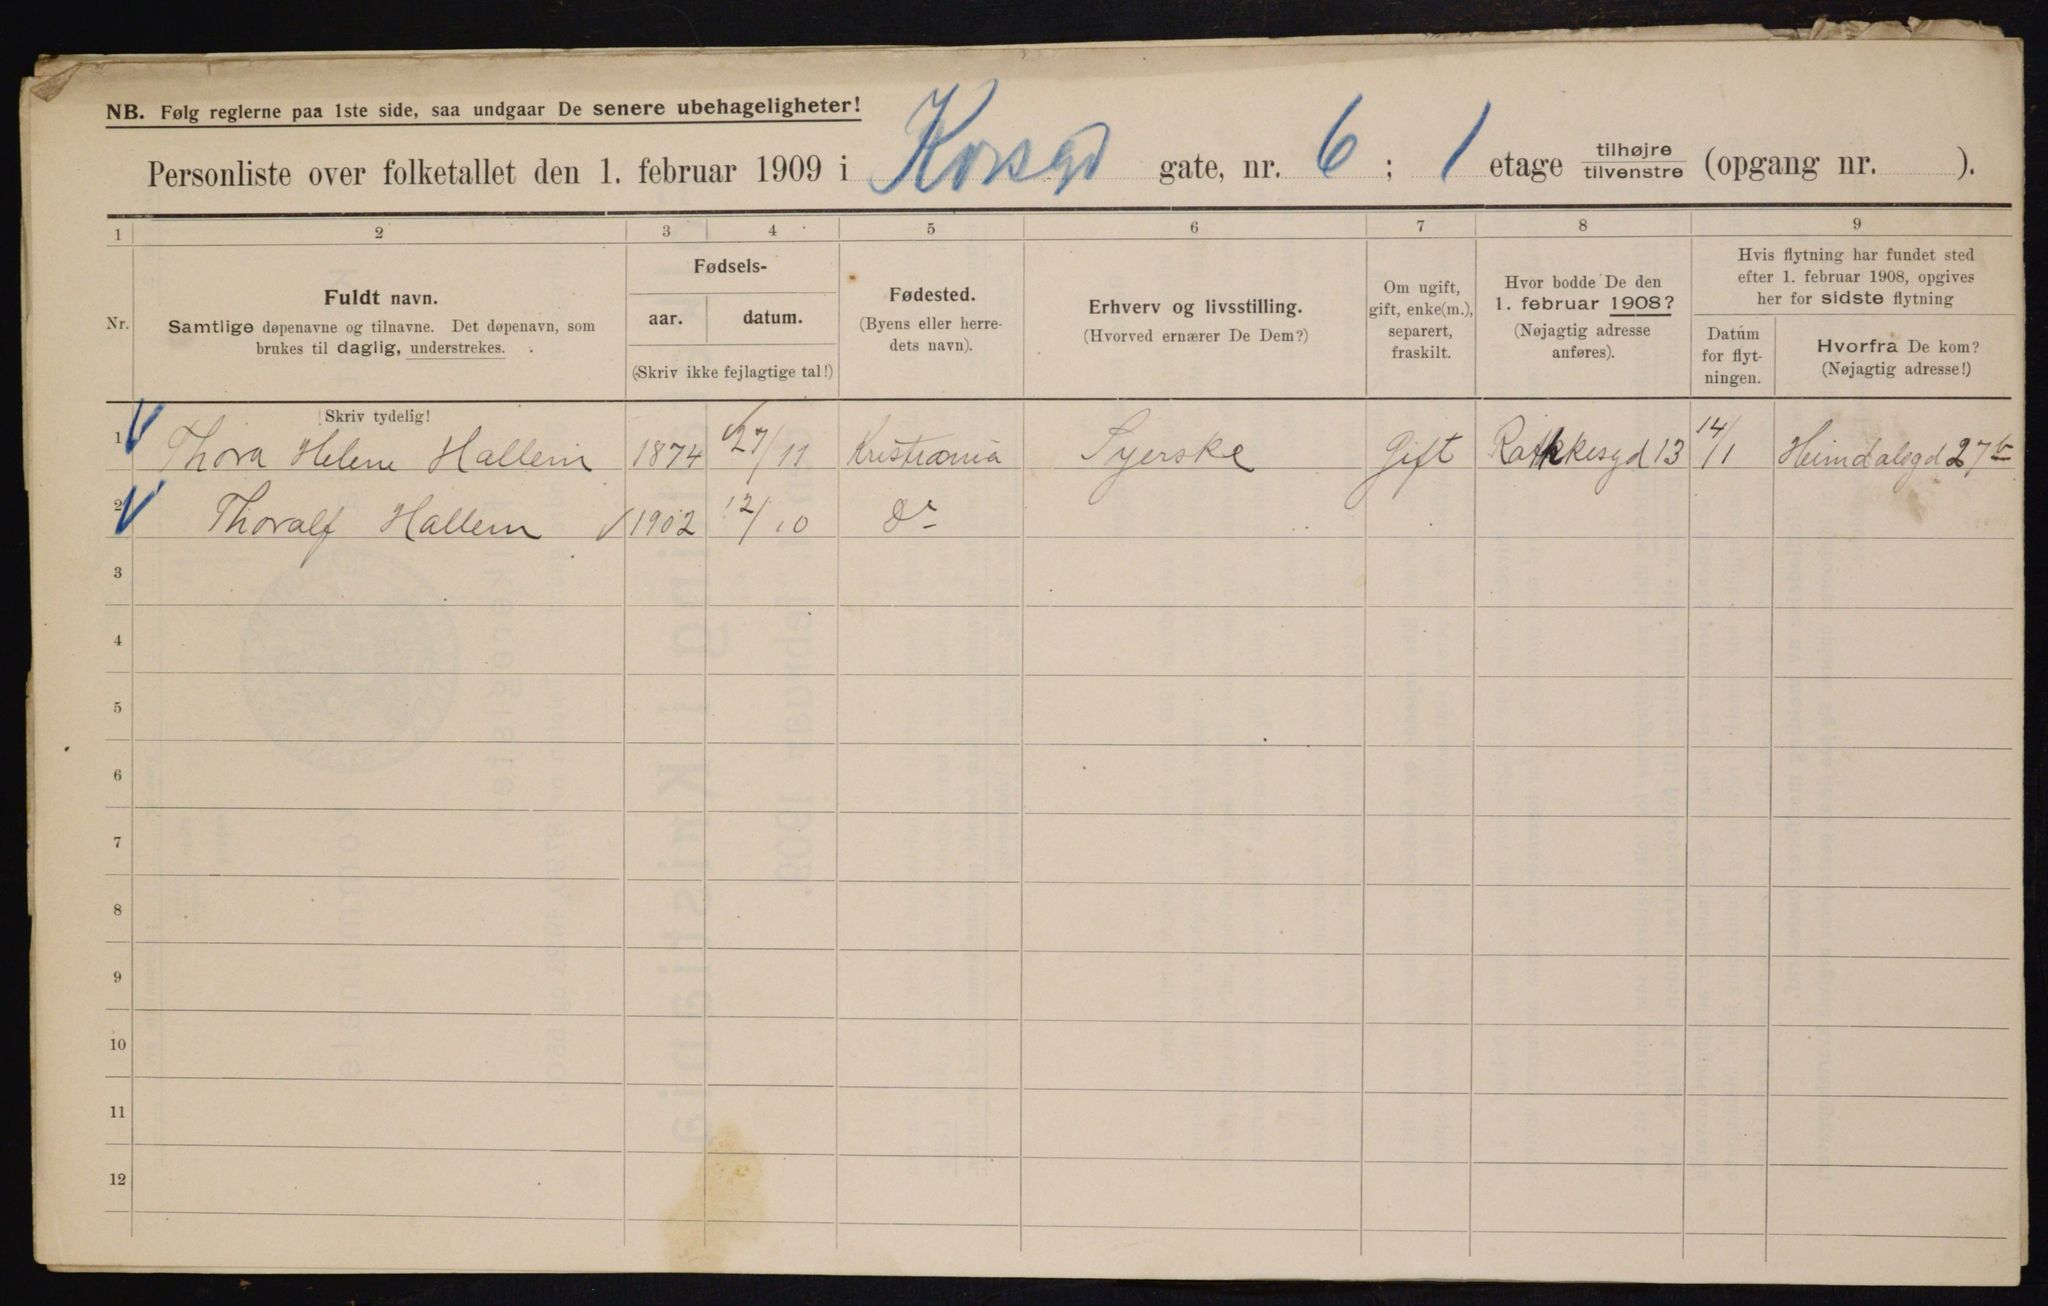 NB. Følg reglerne paa 1ste side, saa undgaar De senere ubehageligheter!
Personliste over folketallet den 1. februar 1909 i Korsgd gate, nr. 6; 1 etage tilhøjre tilvenstre (opgang nr. ).
1 2 3 4 5 6 7 8 9
Nr.
Fuldt navn.
Samtlige døpenavne og tilnavne. Det døpenavn, som
brukes til daglig, understrekes.
Fødsels-
aar. datum.
(Skriv ikke fejlagtige tal!)
Fødested.
(Byens eller herre-
dets navn).
Erhverv og livsstilling.
(Hvorved ernærer De Dem?)
Om ugift,
gift, enke(m.),
separert,
fraskilt.
Hvor bodde De den
1. februar 1908?
(Nøjagtig adresse
anføres).
Hvis flytning har fundet sted
efter 1. februar 1908, opgives
her for sidste flytning
Datum
for flyt-
ningen.
Hvorfra De kom?
(Nøjagtig adresse!)
Skriv tydelig!
1 Thora Helene Hallem 1874 27/11 Kristiania Syerske Gift Rathkesgd 13 14/1 Heimdalsgd 27b
2 Thoralf Hallem 1902 12/10 do
3
4
5
6
7
8
9
10
11
12